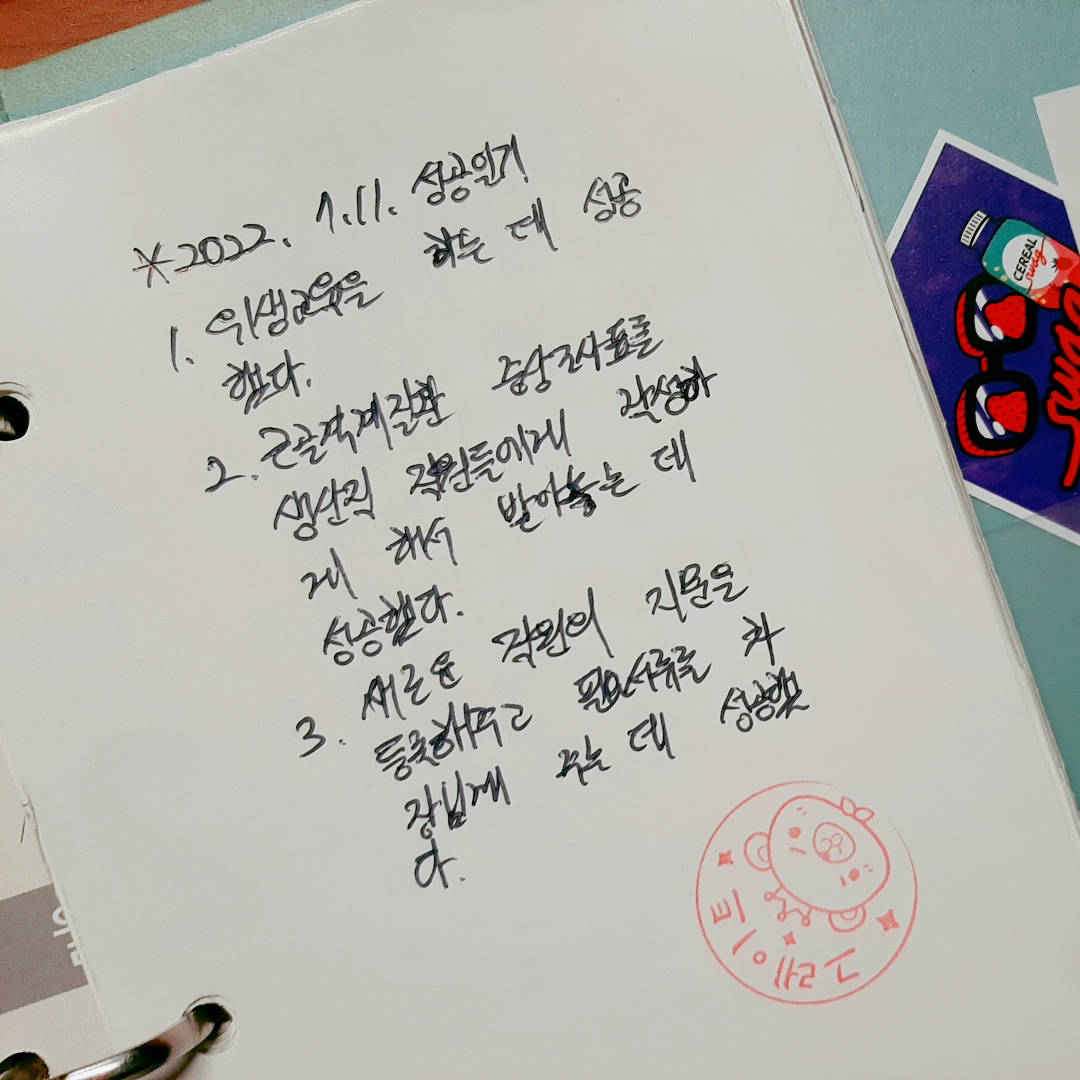 ※2022. 1.11. 성공일기
1. 위생교육을 하는 데 성공
했다.
2. 근골격계질환 증상조사표를
생산직 직원들에게 작성하
게 해서 받아놓는 데
성공했다.
3. 새로운 직원의 지문을
등록해주고 필요서류를 차
장님께 주는 데 성공했
다.
CEREAL
swag